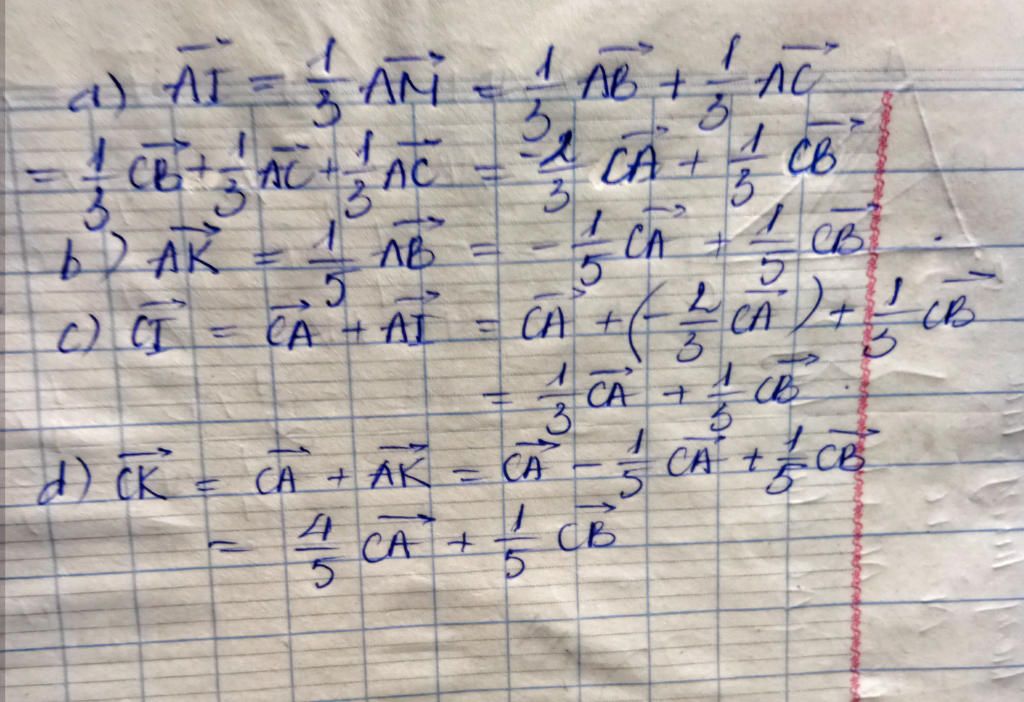 a) \overrightarrow{AI} = \frac{1}{3} \overrightarrow{AM} = \frac{1}{3} \overrightarrow{AB} + \frac{1}{3} \overrightarrow{AC}
= \frac{1}{3} \overrightarrow{CB} + \frac{1}{3} \overrightarrow{AC} + \frac{1}{3} \overrightarrow{AC} = \frac{-2}{3} \overrightarrow{CA} + \frac{1}{3} \overrightarrow{CB}
b) \overrightarrow{AK} = \frac{1}{5} \overrightarrow{AB} = -\frac{1}{5} \overrightarrow{CA} + \frac{1}{5} \overrightarrow{CB}.
c) \overrightarrow{CI} = \overrightarrow{CA} + \overrightarrow{AI} = \overrightarrow{CA} + (-\frac{2}{3} \overrightarrow{CA}) + \frac{1}{3} \overrightarrow{CB}
= \frac{1}{3} \overrightarrow{CA} + \frac{1}{3} \overrightarrow{CB}.
d) \overrightarrow{CK} = \overrightarrow{CA} + \overrightarrow{AK} = \overrightarrow{CA} - \frac{1}{5} \overrightarrow{CA} + \frac{1}{5} \overrightarrow{CB}
= \frac{4}{5} \overrightarrow{CA} + \frac{1}{5} \overrightarrow{CB}